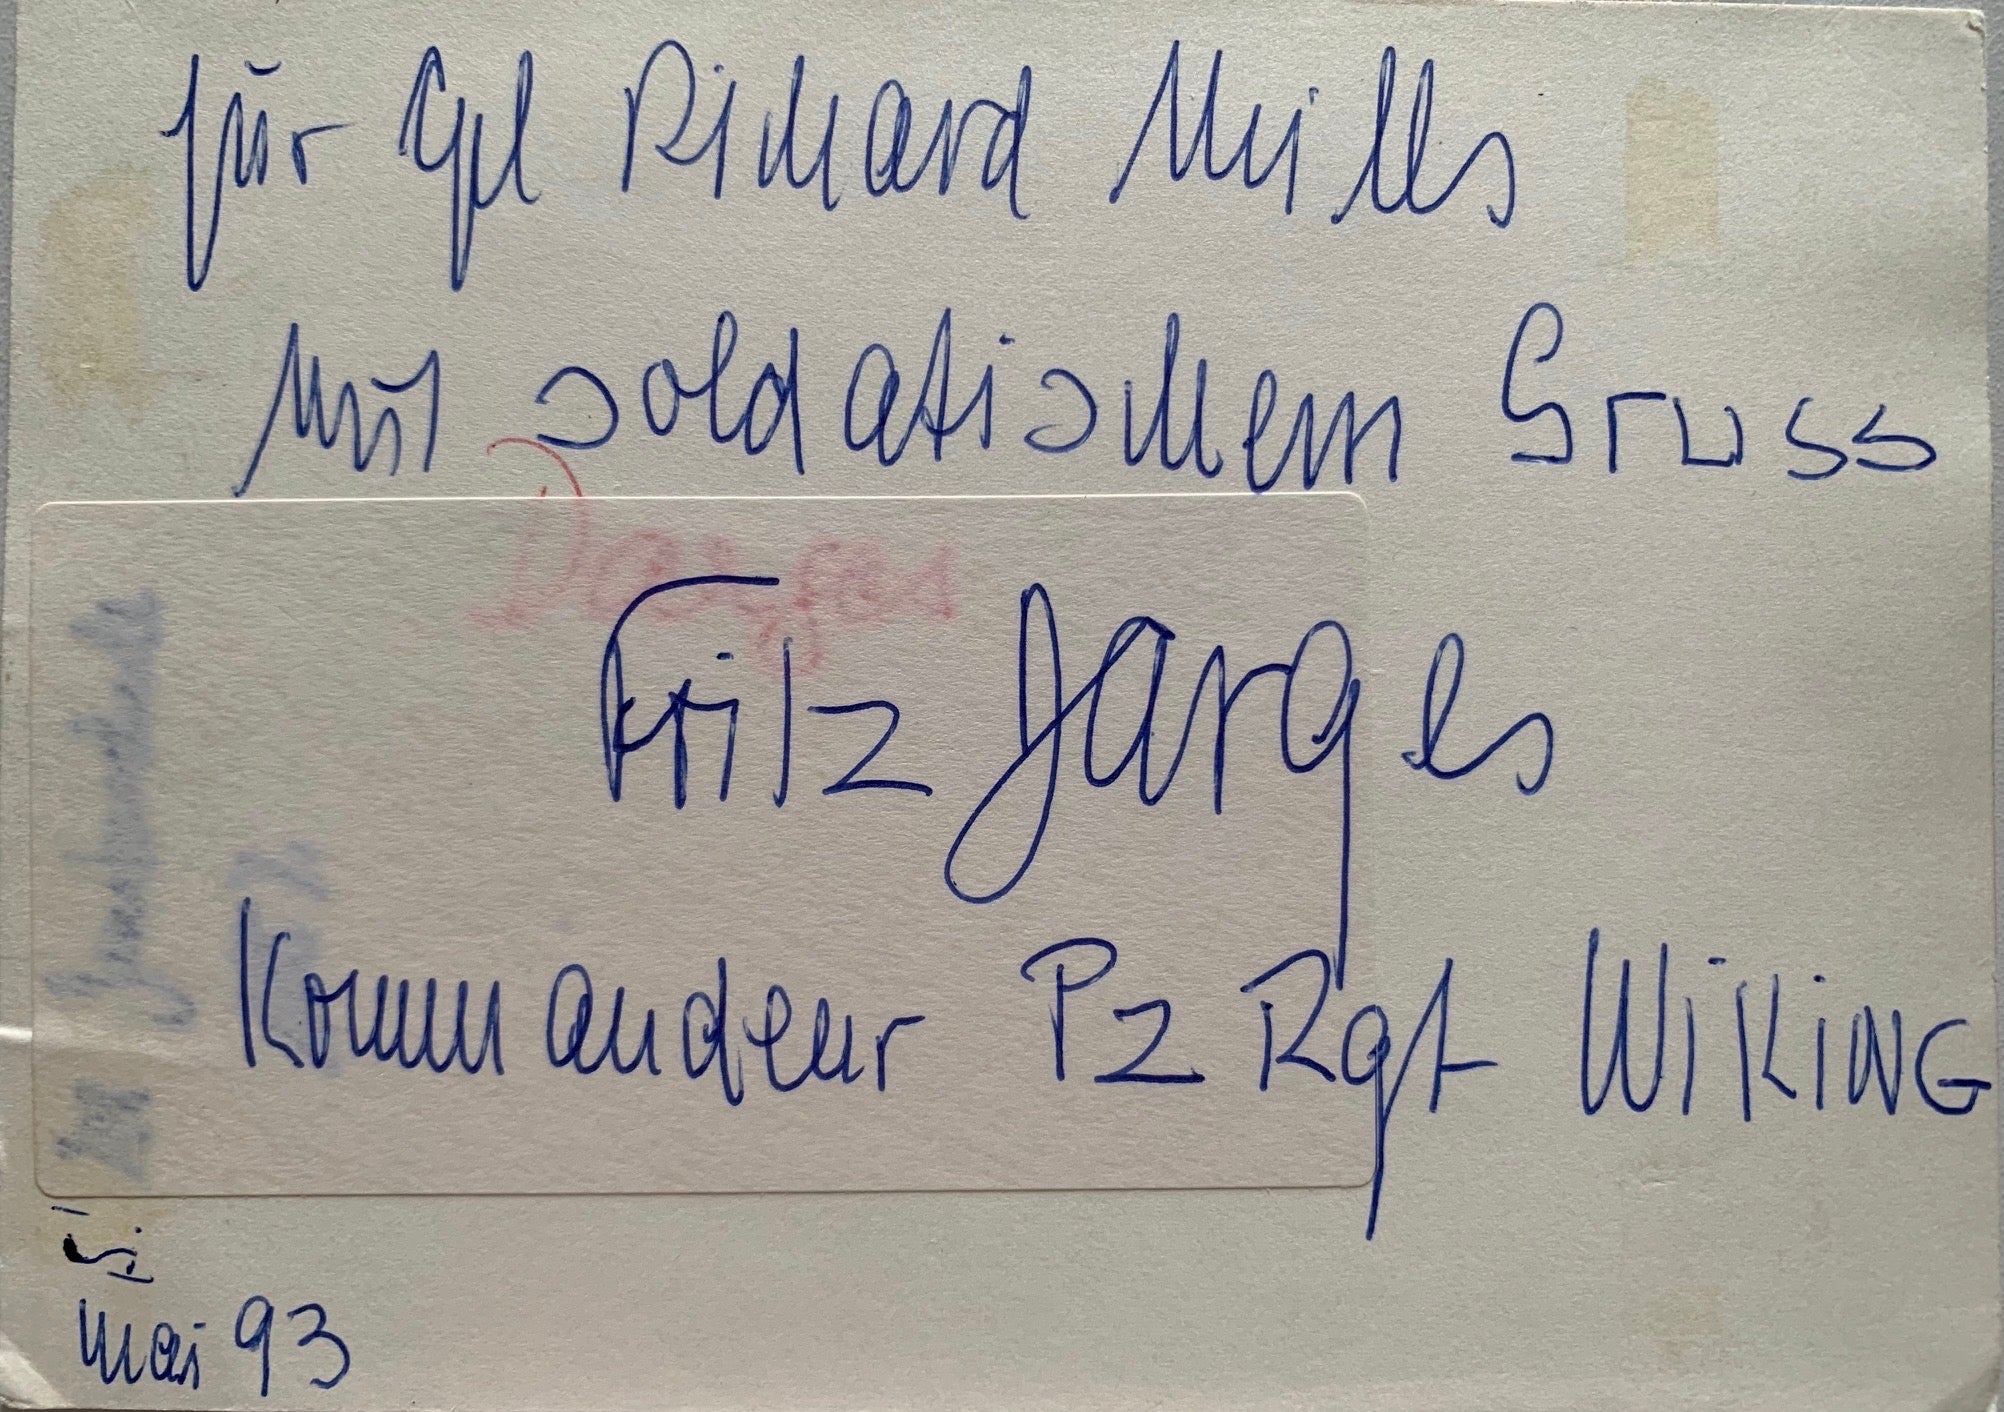 für Cpl Richard Mills
Mit soldatischem Gruss
Fritz Darges
Kommandeur Pz Rgt WiKiNG
Mai 93